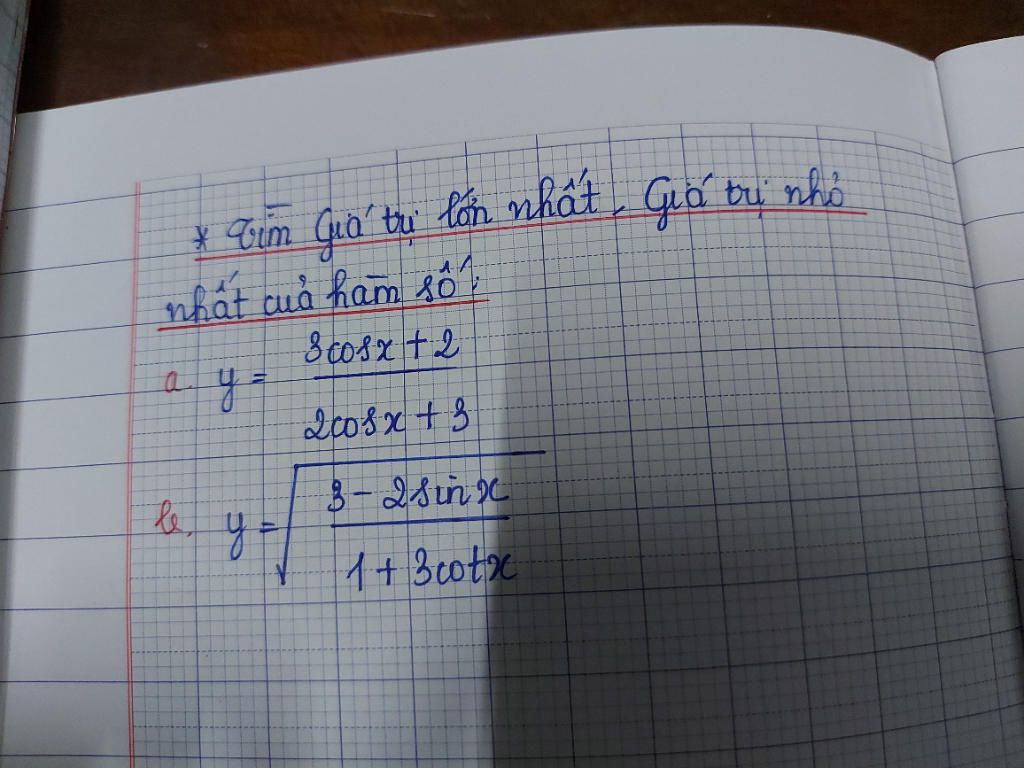 * Tìm Giá trị lớn nhất, Giá trị nhỏ
nhất của hàm số:
a. y = \frac{3cosx + 2}{2cosx + 3}
b. y = \sqrt{\frac{3 - 2sinx}{1 + 3cotx}}